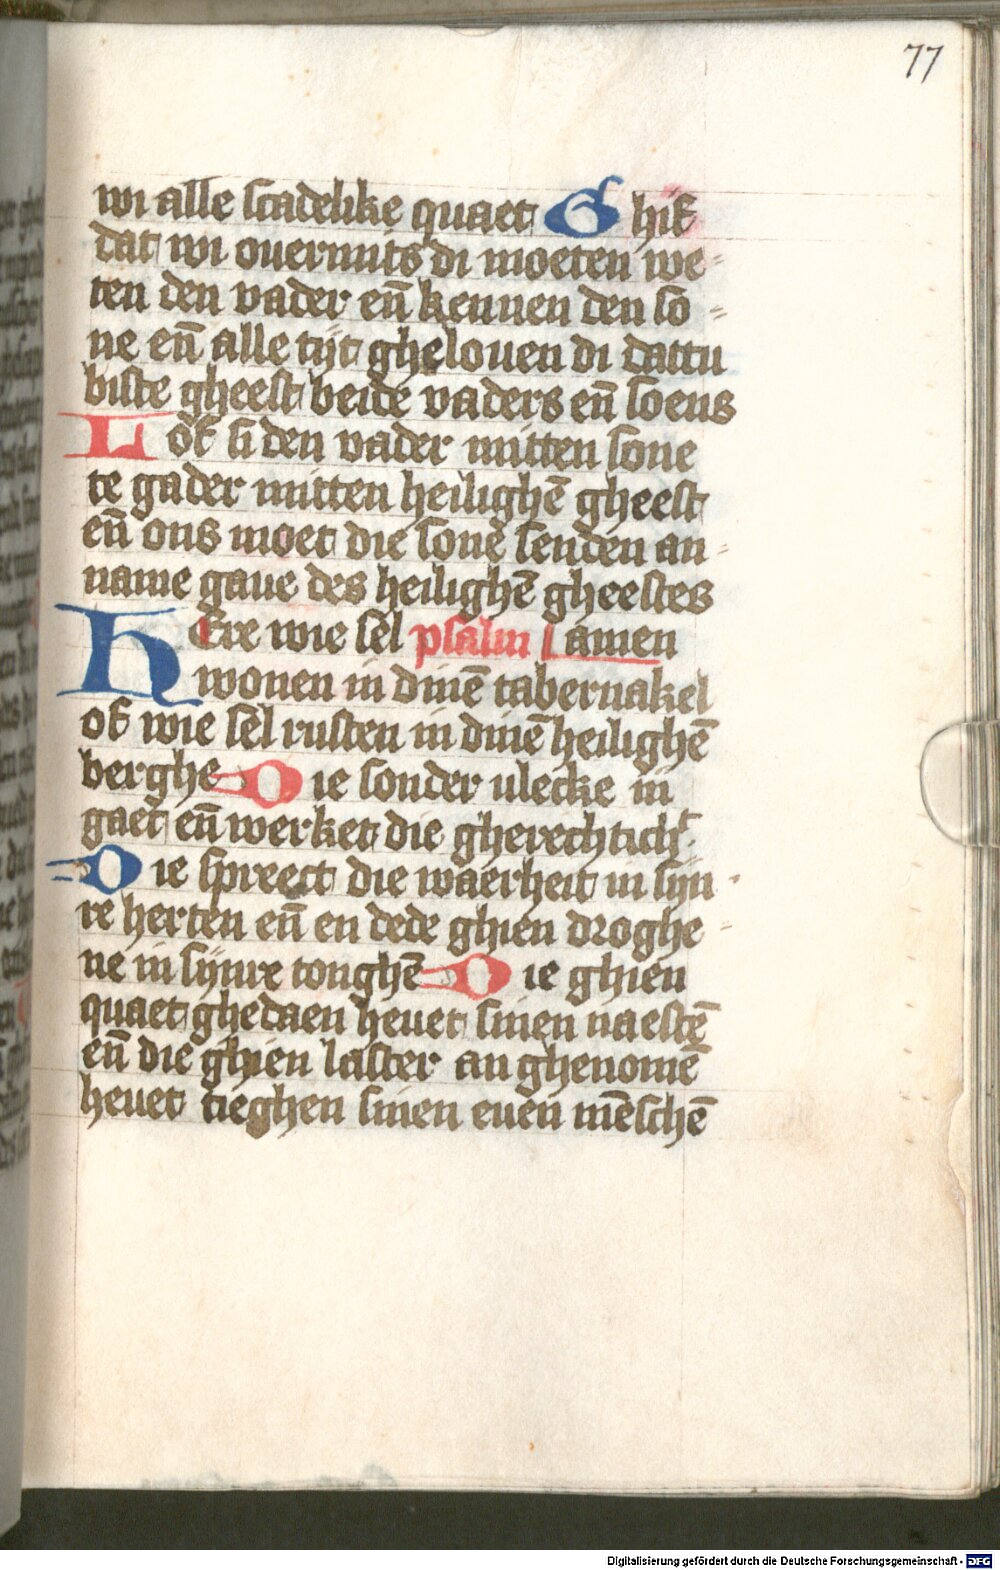 77
wi alle scadelike quaet Ghif
dat wi ouermits di moeten we-
ten den vader en̄ kennen den so-
ne en̄ alle tijt ghelouen di dattu
biste gheest beide vaders en̄ soens
Lof si den vader mitten sone
te gader mitten heilighē gheest
en̄ ons moet die sone senden an-
name gaue des heilighē gheestes
HEre wie sel psalm amen
wonen in dinē tabernakel
of wie sel rusten in dinē heilighē
berghe Die sonder vlecke in
gaet en̄ werket die gherechtich^t
Die spreect die waerheit in sijn-
re herten en̄ en dede ghien droghe-
ne in sijnre tonghē Die ghien
quaet ghedaen heuet sinen naestē
en̄ die ghien laster an ghenomē
heuet tieghen sinen euen mēschē
Digitalisierung gefördert durch die Deutsche Forschungsgemeinschaft - DFG